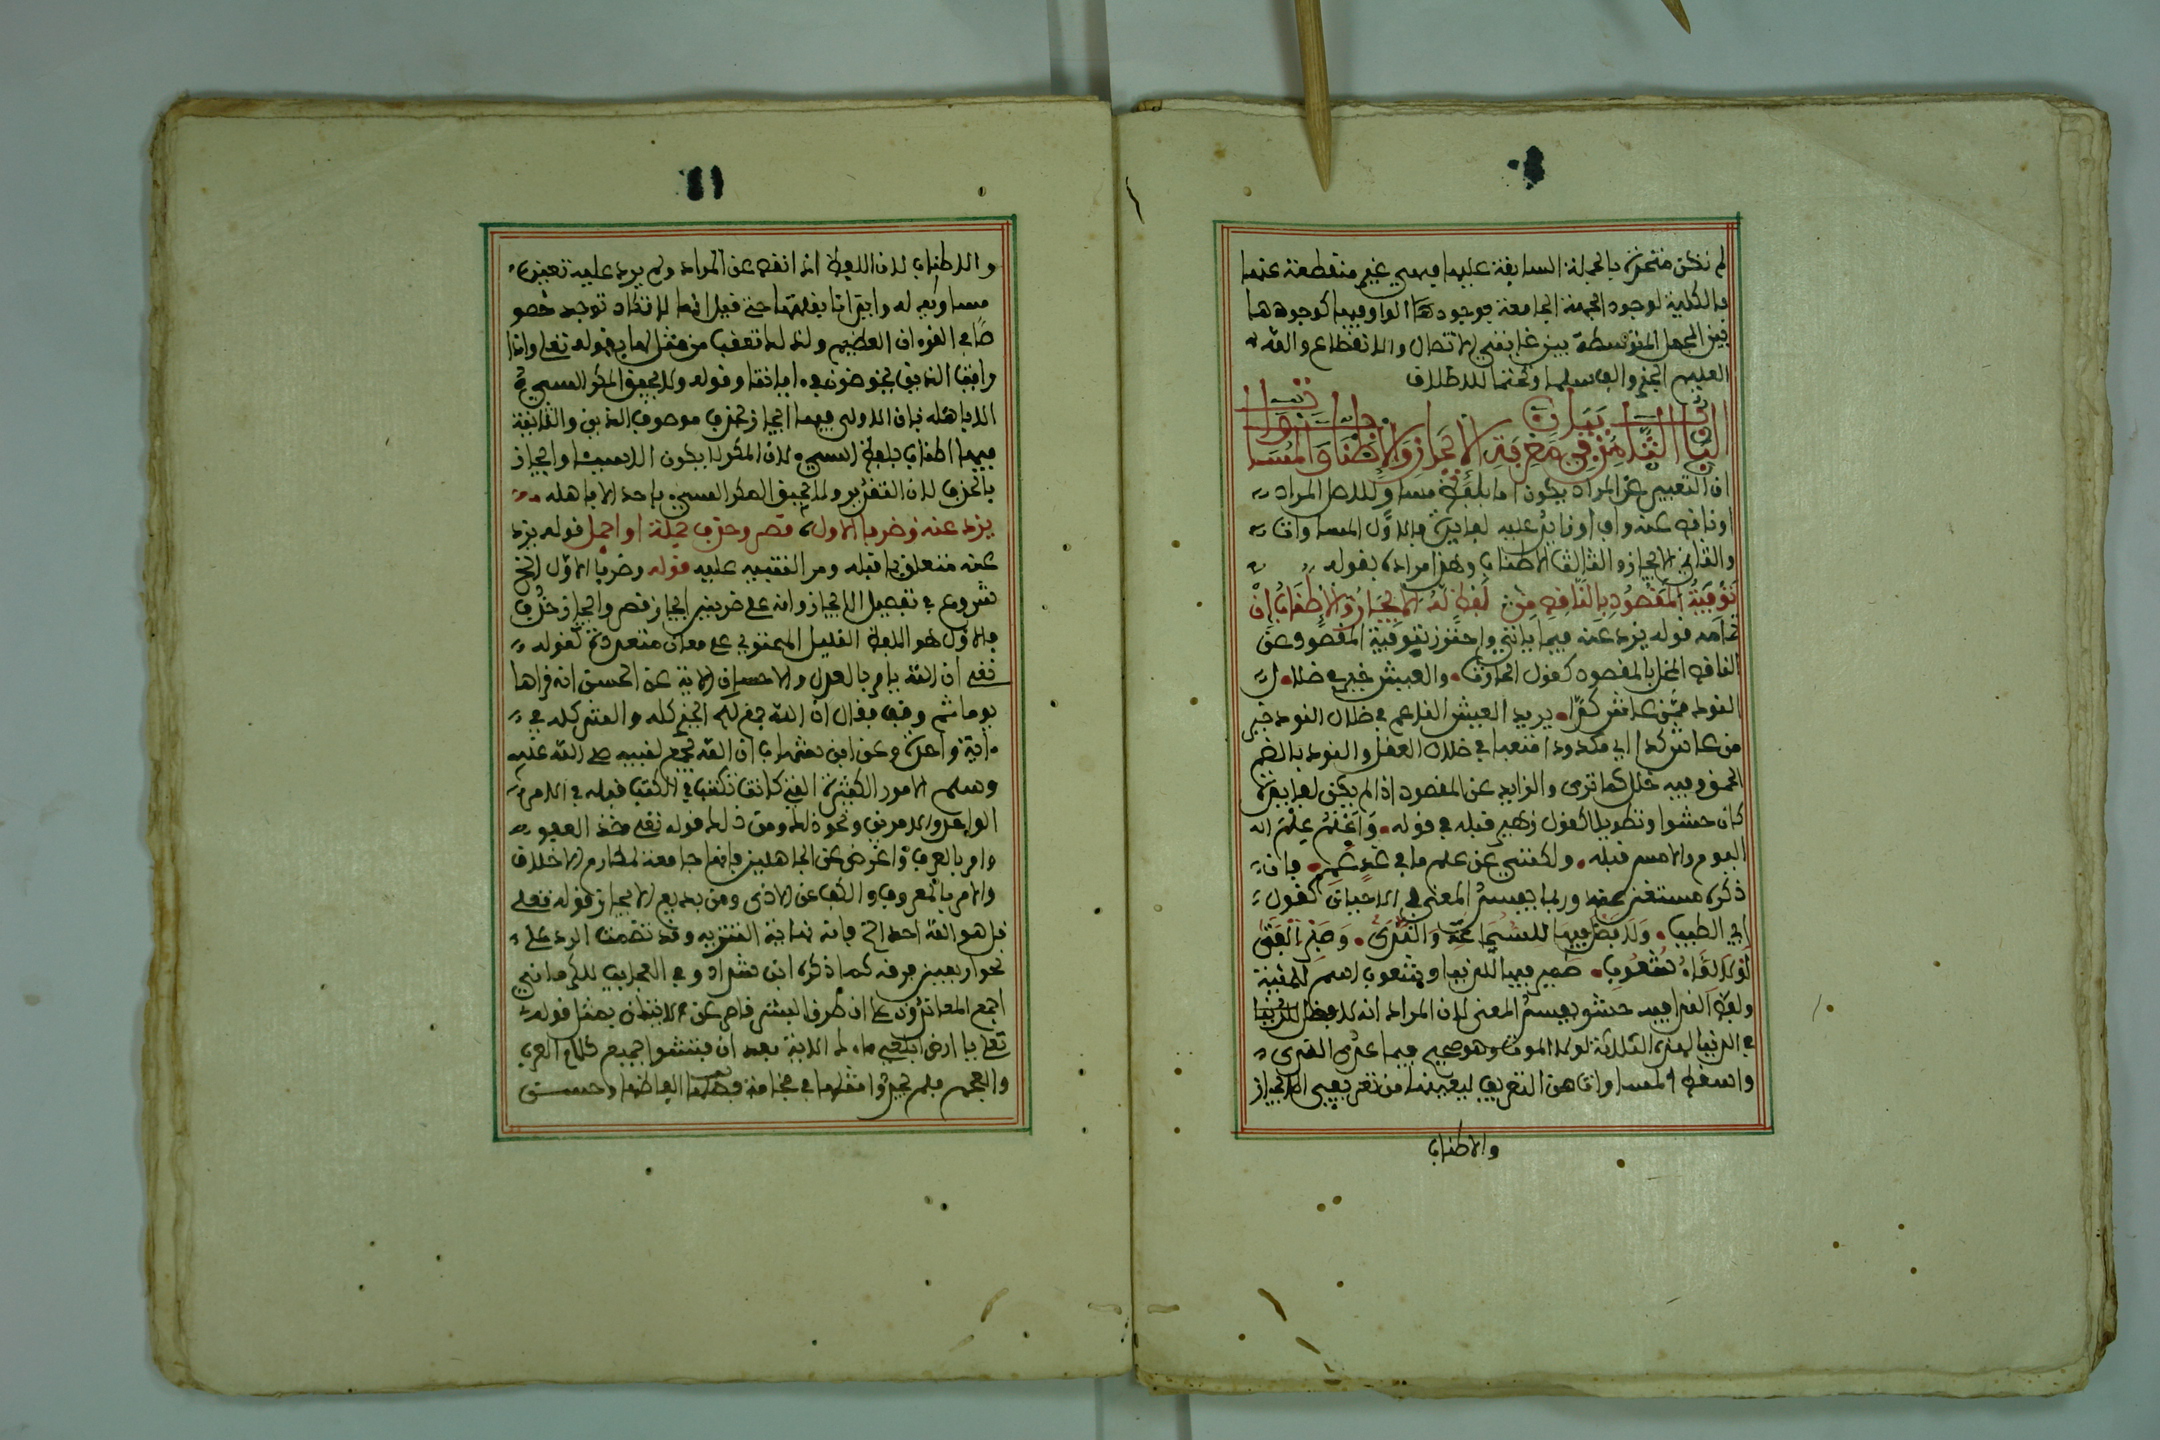 لم تكن متحدة بالجملة السابقة عليها فهي غير منقطعة عنها
بالكلية لوجود الجهة الجامعة فوجودها الواو فيها كوجودها
بين الجمل المتوسطة بين غايتي الاتصال والانقطاع والله
العليم الخبير والهـ
الباب الثامن في بيان معرفة الايجاز والاطناب والمساوات
ان التعبير عن المراد يكون اما بلفظ مساو لاصل المراد
او ناقص عنه واف او زايد عليه لفايدة فالاول المساوات
والثاني الايجاز والثالث الاطناب وهذا مراده بقوله
تَوْفِيَةُ المَقْصُودِ بِالنَّاقِصِ مِنْ لَفْظٍ لَهُ الايجَازُ وَالاِطْنَابُ إِنْ
نجامه قوله يزد عنه فيما ياتي واحترز بتوفية المقصود عن
الناقص المخل بالمقصود كقول الحارث والعيش خير في ظلال
النوك ممن عاش كدا يريد العيش الناعم في ظلال النوك خير
من عاش كدا اي مكدودا متعبا في ظلال العقل والنوك بالضم
الحمق وفيه خلل كما ترى والزايد عن المقصود اذا لم يكن لفايدة
كان حشوا وتطويلا كقول زهير قبله في قوله وَاَعْلَمُ عِلْمَ ال
اليوم والامس قبله ولكنني عن علم ما في غد عم فان
ذكره مستغنى عنه وربما يفسد المعنى في الاحيان كقول
ابي الطيب ولا فضل فيها للشجاعة والندى وَصَبْرِ الفَتَى
لَوْلَا لِقَاءُ شَعُوبِ ضمير فيها للدنيا وشعوب اسم للمنية
ولفظ الندا فيه حشو يفسد المعنى لان المراد انه لا فضل للدنيا
في الدنيا لهذه الثلاثة لولا الموت وهو صحيح فيما عدا الندى
واسقط المساوات من التعريف ليفهمها من تعريفي الايجاز
والاطناب
11
والاطناب لان اللفظ اذا نقص عن المراد ولم يزد عليه تعين
مساوته له وايذانا بقلتها حتى قيل انها لا تكاد توجد خصو
صا في القرءان العظيم ولذلك تعقب من مثل لها بقوله تعلى واذا
رايت الذين يخوضون في ءاياتنا وقوله ولا يحيق المكر السيئ
الا باهله فان الاولى فيها ايجاز بحذف موصوف الذين والثانية
فيها اطناب بلفظ السيئ لان المكر لا يكون الا سيئا وايجاز
بالحذف لان التقدير ولا يحيق المكر السيئ باحد الا باهله
يزد عنه وضربا الاول قصر وحذف جملة او اجمل قوله يزد
عنه متعلق بما قبله ومر التنبيه عليه قوله وضربا الاول الخ
شروع في تفصيل الايجاز وانه على ضربين ايجاز قصر وايجاز حذف
فالاول هو اللفظ القليل المحتوي على معان متعددة كقوله
تعلى ان الله يامر بالعدل والاحسان الاية عن الحسن انه قراها
يوما ثم وقف فقال ان الله جمع لكم الخير كله والشر كله في
ءاية واحدة وعن ابن شهاب ان الله جمع لنبيه صلى الله عليه
وسلم الامور الكثيرة التي كانت تكتب في الكتب قبله في الامر
الواحد والامرين ونحو ذلك ومن ذلك قوله تعلى خذ العفو
وامر بالعرف واعرض عن الجاهلين فانها جامعة لمكارم الاخلاق
والامر بالمعروف والكف عن الاذى ومن بديع الايجاز قوله تعلى
قل هو الله احد الخ فانه نهاية التنزيه وقد تضمنت الرد على
نحو اربعين فرقة كما ذكره ابن شداد وفي العجايب للكرماني
اجمع المعاندون على ان طوق البشر قاصر عن الاتيان بمثل قوله
تعلى يا ارض ابلعي ماءك الاية بعد ان فتشوا جميع كلام العرب
والعجم فلم يجدوا مثلها في فخامة الفاظها وحسن